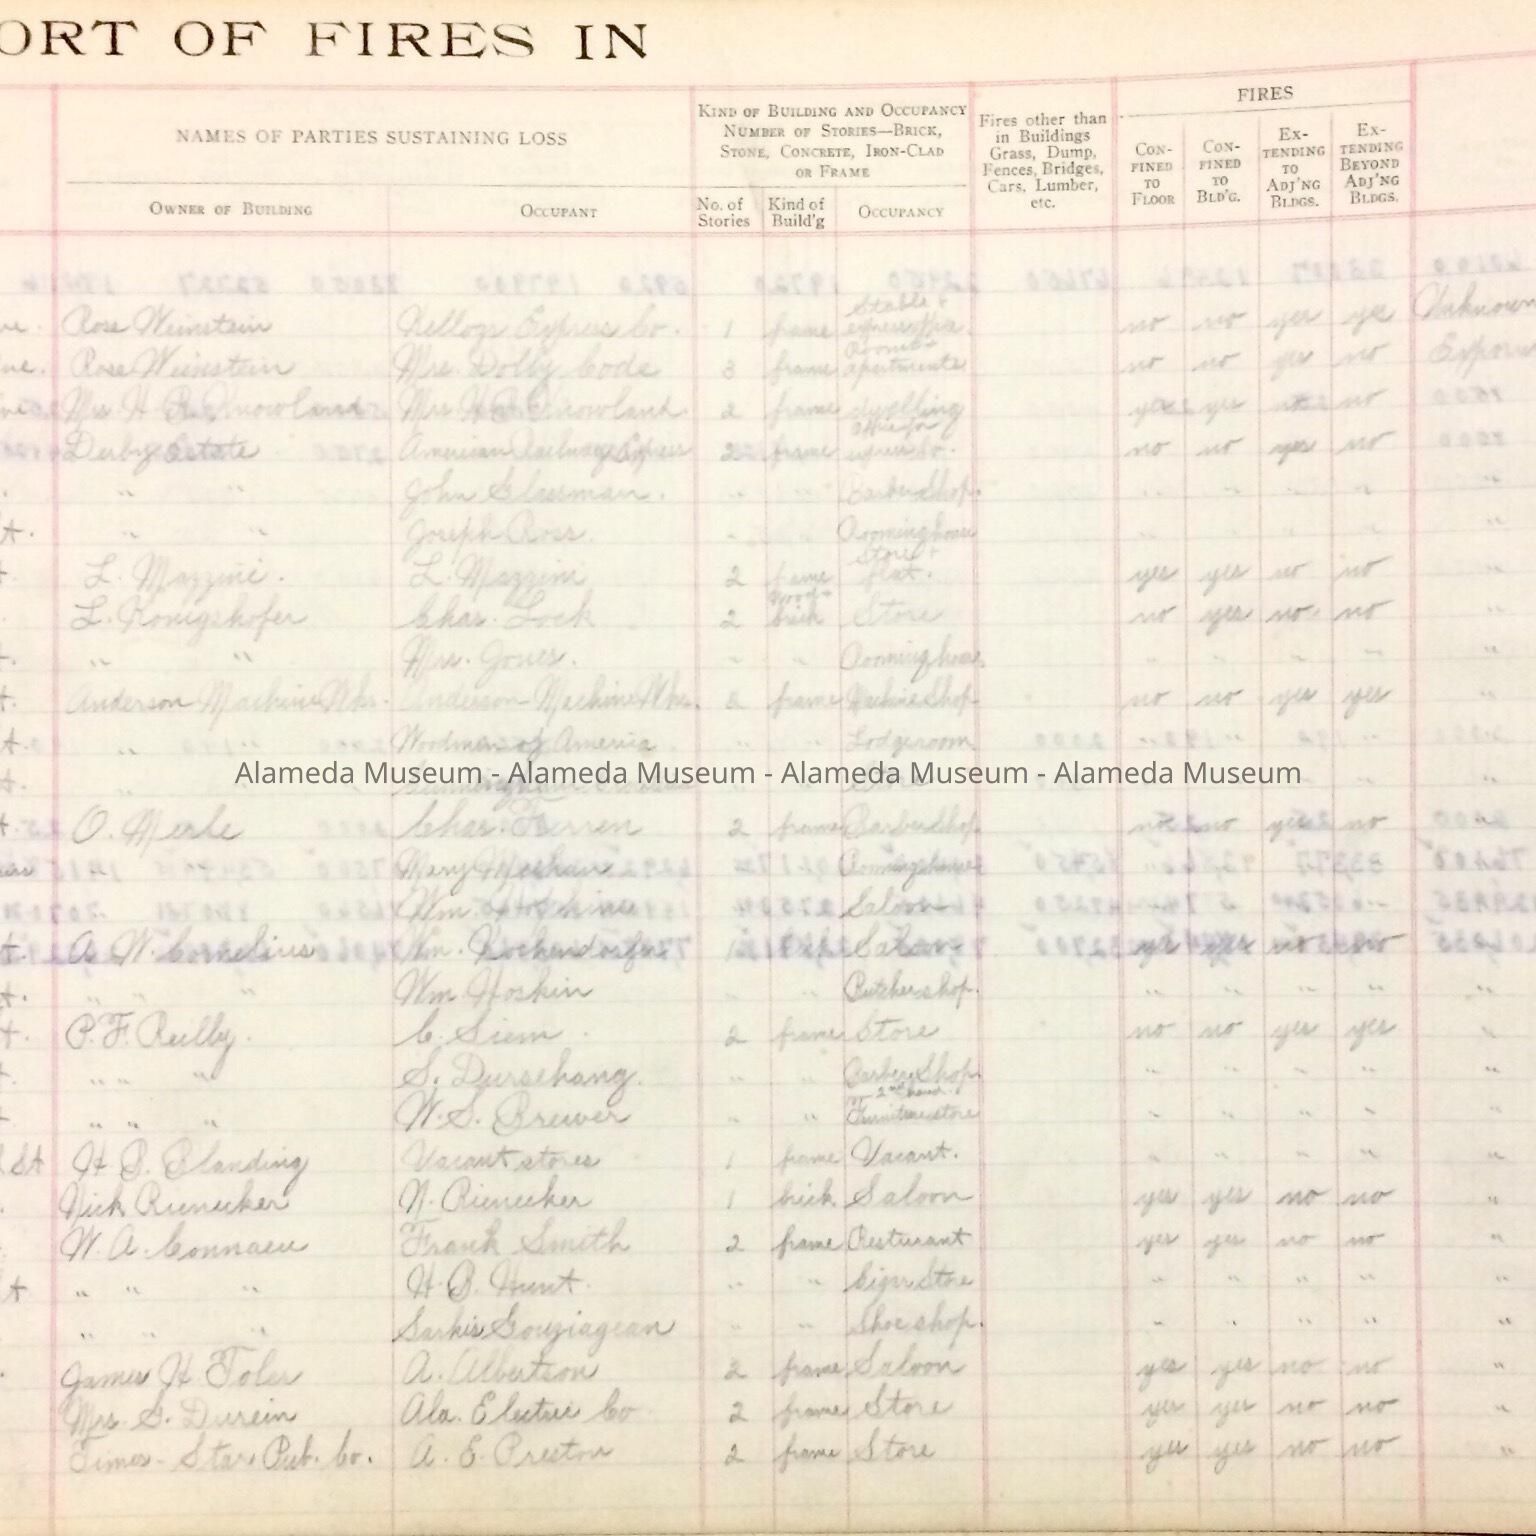 ORT OF FIRES IN
NAMES OF PARTIES SUSTAINING LOSS
KIND OF BUILDING AND OCCUPANCY
NUMBER OF STORIES—BRICK,
STONE, CONCRETE, IRON-CLAD
OR FRAME
Fires other than
in Buildings
Grass, Dump,
Fences, Bridges,
Cars, Lumber,
etc.
FIRES
CON-
FINED
TO
FLOOR
CON-
FINED
TO
BLD'G.
EX-
TENDING
TO
ADJ'NG
BLDGS.
EX-
TENDING
BEYOND
ADJ'NG
BLDGS.
OWNER OF BUILDING OCCUPANT No. of Stories Kind of Build'g OCCUPANCY
Stable +
Rose Weinstein Kellogg Express Co. 1 frame express office. no no yes yes Unknown
Rooms +
Rose Weinstein Mrs. Dolly Code 3 frame apartments no no yes no
Mrs. H. B. Knowland Mrs. H. B. Knowland 2 frame dwelling yes yes no no
Office for
Derby Estate American Railway Express 2 frame express Co. no no yes no
" " John Glassman. " " Barber Shop. " " " " "
" " Joseph Ross. " " Rooming house " " " " "
Store +
L. Mazzini. L. Mazzini 2 frame flat. yes yes no no "
wood +
L. Konigshofer Chas. Lock 2 brick Store no yes no no "
" " Mrs. Jones. " " Rooming house. " " " " "
Anderson Machine Wks. Anderson Machine Wks. 2 frame Machine Shop no no yes yes "
" " Woodmen of America " " Lodgeroom " " " "
Alameda Museum - Alameda Museum - Alameda Museum - Alameda Museum
O. Merle Chas. Ferren 2 frame Barber Shop. no no yes no
Mary Meehan Rooming house
Wm. Saloon
A. W. Cornelius Wm. Kochendorfer 1 brick Saloon yes yes no no
" " " Wm Hoskin " " Butcher shop. " " " " "
P. F. Reilly. C. Siem 2 frame Store no no yes yes "
" " " S. Durschang. " " Barber Shop. " " " " "
2nd hand
" " " W. S. Brewer " " Furniture store " " " " "
St H. B. Blanding Vacant stores 1 frame Vacant. " " " " "
Nick Rienecker N. Rienecker 1 brick Saloon yes yes no no "
W. A. Frank Smith 2 frame Resturant yes yes no no "
" " " H. B. Hunt. " " Cigar Store " " " " "
" " " Sarkis Gouziagean " " Shoe shop. " " " " "
James H. Toler A. Albertson 2 frame Saloon yes yes no no "
Mrs. S. Durein Ala. Electric Co 2 frame Store yes yes no no "
Times-Star Pub. Co. A. E. Preston 2 frame Store yes yes no no "